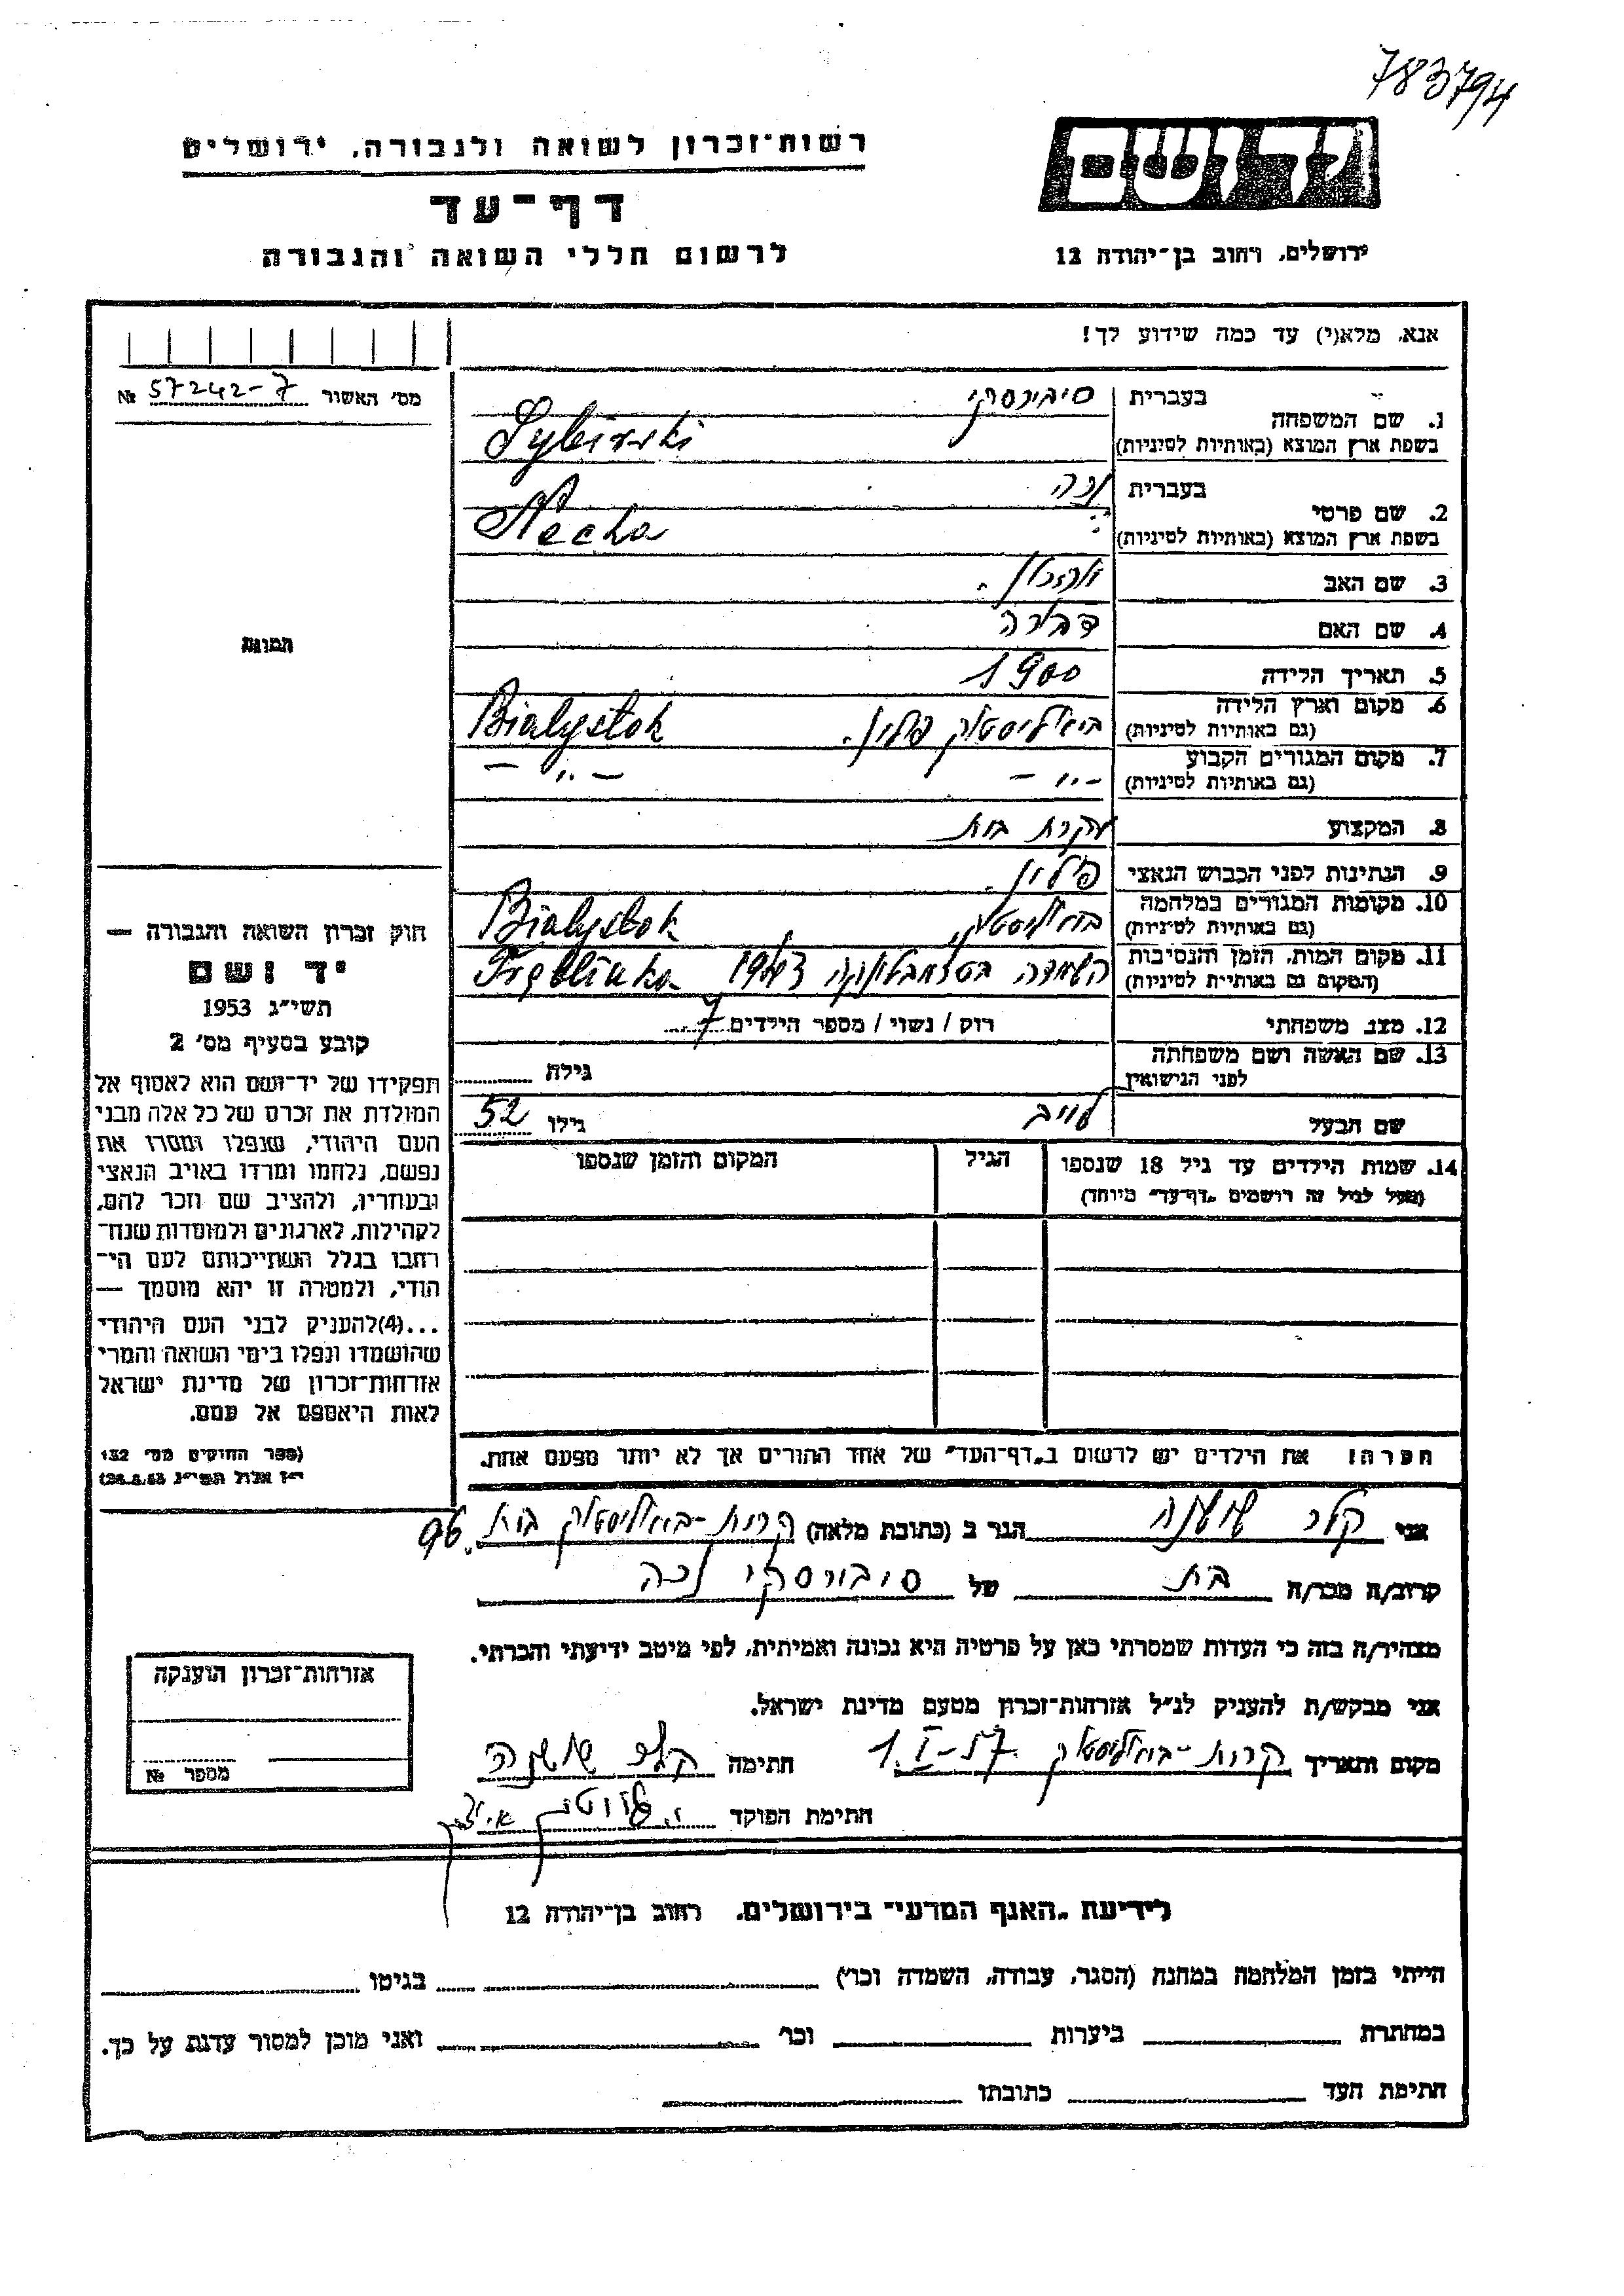 783794
רשות-זכרון לשואה ולגבורה, ירושלים
יד ושם
דף-עד
לרשום חללי השואה והגבורה
ירושלים, רחוב בן-יהודה 12
אנא, מלא(י) עד כמה שידוע לך!
מס' האשור 57242-7 №
תמונה
1. שם המשפחה
בעברית סיבירסקי
בשפת ארץ המוצא (באותיות לטיניות) Sybirski
2. שם פרטי
בעברית נכה
בשפת ארץ המוצא (באותיות לטיניות) Necha
3. שם האב
4. שם האם דבורה
5. תאריך הלידה 1900
6. מקום וארץ הלידה ביאליסטוק פולין. Bialystok
(גם באותיות לטיניות)
7. מקום המגורים הקבוע – ,, – – ,, –
(גם באותיות לטיניות)
8. המקצוע עקרת בית
9. הנתינות לפני הכבוש הנאצי פולין.
10. מקומות המגורים במלחמה ביאליסטוק, Bialystok
(גם באותיות לטיניות)
11. מקום המות, הזמן והנסיבות השמדה בטרמבלינקה 1943 Tręblinka
(המקום גם באותיות לטיניות)
12. מצב משפחתי רווק / נשוי / מספר הילדים 7
13. שם האשה ושם משפחתה גילה
לפני הנישואין
שם הבעל לייב גילו 52
14. שמות הילדים עד גיל 18 שנספו הגיל המקום והזמן שנספו
(מעל לגיל זה רושמים "דף-עד" מיוחד)
הערה: את הילדים יש לרשום ב"דף-העד" של אחד ההורים אך לא יותר מפעם אחת.
חוק זכרון השואה והגבורה —
יד ושם
תשי"ג 1953
קובע בסעיף מס' 2
תפקידו של יד-ושם הוא לאסוף אל
המולדת את זכרם של כל אלה מבני
העם היהודי, שנפלו ומסרו את
נפשם, נלחמו ומרדו באויב הנאצי
ובעוזריו, ולהציב שם וזכר להם,
לקהילות, לארגונים ולמוסדות שנח-
רבו בגלל השתייכותם לעם הי-
הודי, ולמטרה זו יהא מוסמך —
...(4)להעניק לבני העם היהודי
שהושמדו ונפלו בימי השואה והמרי
אזרחות-זכרון של מדינת ישראל
לאות היאספם אל עמם.
(ספר החוקים מס' 132
י"ז אלול תשי"ג 28.8.53)
אני קלר שושנה הגר ב (כתובת מלאה) קרית-ביאליסטוק בית 96.
קרוב/ה מכר/ה בת של סיבירסקי נכה
מצהיר/ה בזה כי העדות שמסרתי כאן על פרטיה היא נכונה ואמיתית, לפי מיטב ידיעתי והכרתי.
אני מבקש/ת להעניק לנ"ל אזרחות-זכרון מטעם מדינת ישראל.
מקום ותאריך קרית-ביאליסטוק 1.I-57 חתימה קלר שושנה
חתימת הפוקד
אזרחות-זכרון הוענקה
מספר №
לידיעת "האגף המדעי" בירושלים, רחוב בן-יהודה 12
הייתי בזמן המלחמה במחנה (הסגר, עבודה, השמדה וכו') בגיטו
במחתרת ביערות וכו' ואני מוכן למסור עדות על כך.
חתימת העד כתובתו